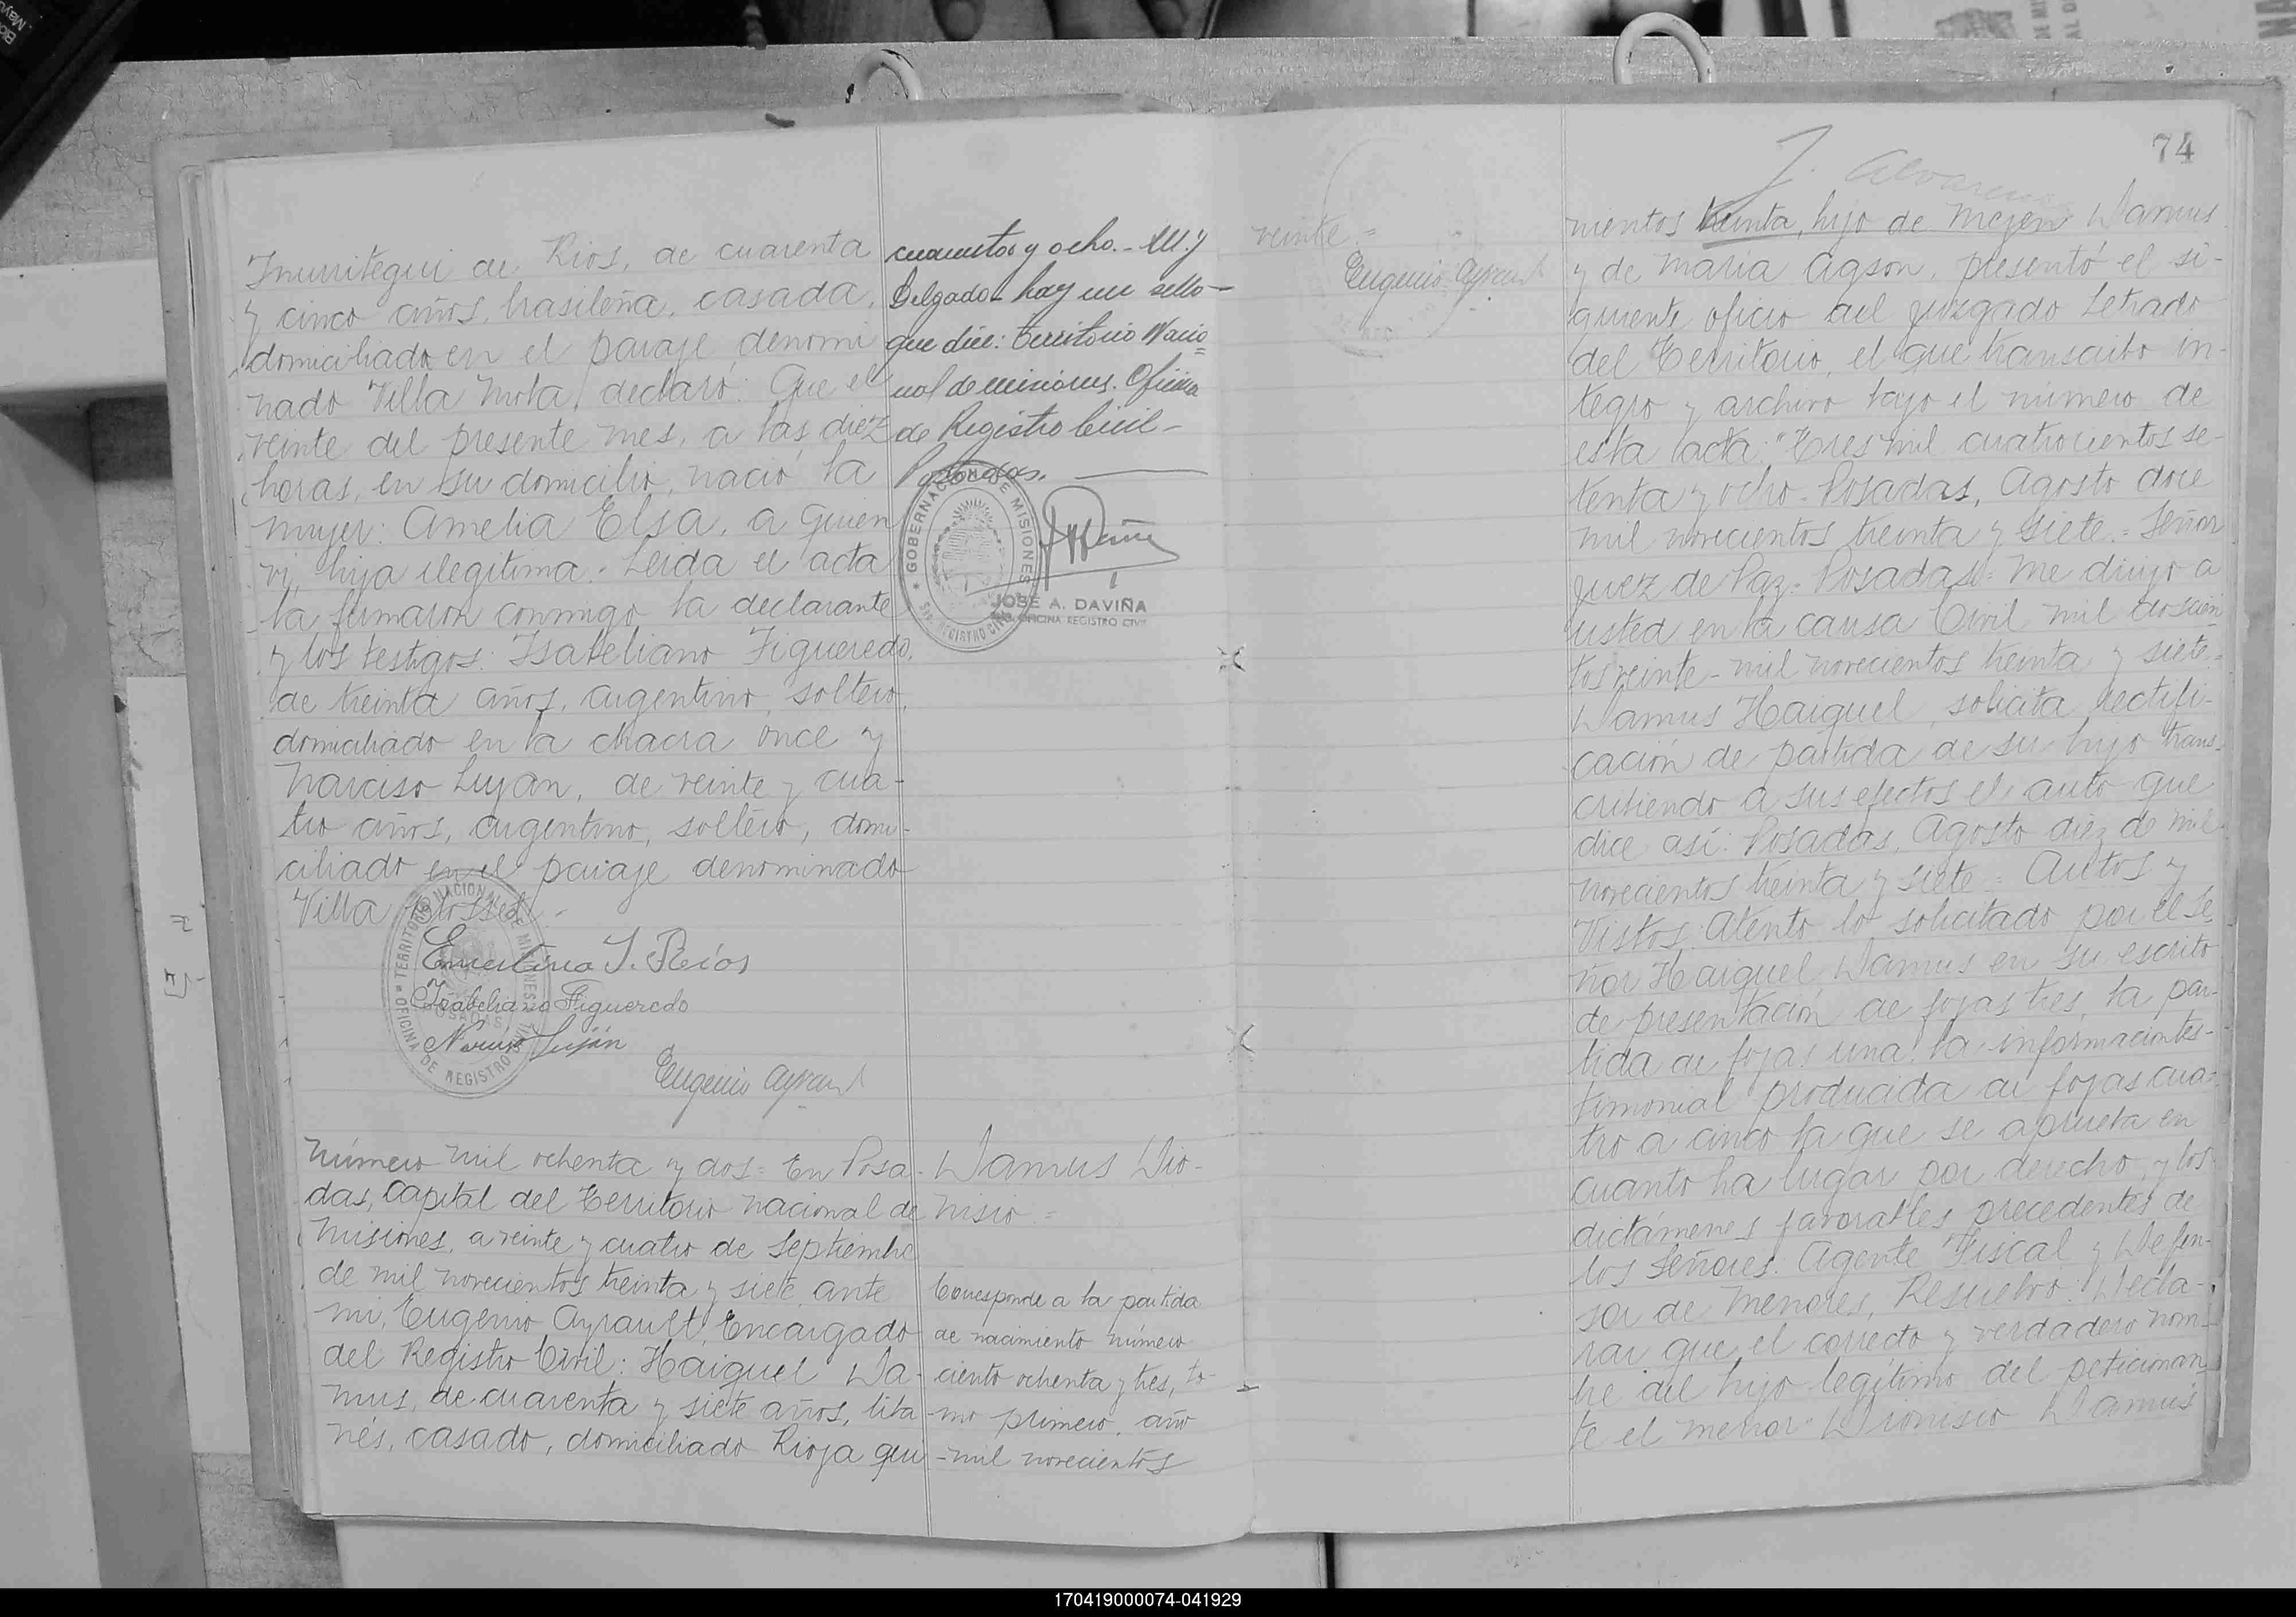 Inurritegui de Rios, de cuarenta
y cinco años, brasileña, casada,
domiciliada en el paraje denomi
nado Villa Mota, declaró: Que el
veinte del presente mes, a las diez
horas, en su domicilio, nació la
mujer: Amelia Elsa, a quien
vi, hija ilegítima.- Leida el acta
la firmaron conmigo la declarante
y los testigos: Isabeliano Figueredo,
de treinta años, argentino, soltero,
domiciliado en la chacra once y
Narciso Luján, de veinte y cua-
tro años, argentino, soltero, domi-
ciliado en el paraje denominado
Villa
TERRITORIO NACIONAL DE MISIONES
OFICINA DE REGISTRO CIVIL
POSADAS
Ernestina I. Rios
Isabeliano Figueredo
Narciso Luján
Eugenio Ayrault
cuarenta y ocho.-
Delgado - hay un sello -
que dice: Territorio Nacio
nal de Misiones. Oficina
de Registro Civil -
Posadas.
GOBERNACION DE MISIONES
REGISTRO CIVIL
JOSE A. DAVIÑA
OFICINA REGISTRO CIVIL
Número mil ochenta y dos = En Posa-
das, Capital del Territorio nacional de
Misiones, a veinte y cuatro de Septiembre
de mil novecientos treinta y siete, ante
mi, Eugenio Ayrault, Encargado
del Registro Civil: Haiguel Da-
mus, de cuarenta y siete años, liba-
nés, casado, domiciliado Rioja qui-
Damus Dio-
nisio =
Corresponde a la partida
de nacimiento número
ciento ochenta y tres, to-
mo primero, año
mil novecientos
veinte =
Eugenio Ayrault
74
J. Alvarenga
nientos treinta, hijo de Mejen Damus
y de Maria Agson, presentó el si-
guiente oficio del Juzgado Letrado
del Territorio, el que transcribo in-
tegro y archivo bajo el número de
esta acta: "Tres mil cuatrocientos se-
tenta y ocho - Posadas, Agosto doce
mil novecientos treinta y siete. = Señor
Juez de Paz = Posadas = Me dirijo a
usted en la causa Civil mil doscien
tos veinte - mil novecientos treinta y siete =
Damus Haiguel, solicita rectifi-
cación de partida de su hijo trans-
cribiendo a sus efectos el auto que
dice así: Posadas, Agosto diez de mil
novecientos treinta y siete = Autos y
Vistos: Atento lo solicitado por el Se
ñor Haiguel Damus en su escrito
de presentación de fojas tres, la par-
tida de fojas una, la información tes-
timonial producida de fojas cua-
tro a cinco la que se aprueba en
cuanto ha lugar por derecho, y los
dictámenes favorables precedentes de
los Señores: Agente Fiscal y Defen-
sor de Menores, Resuelvo: Decla-
rar que el correcto y verdadero nom-
bre del hijo legítimo del peticionan-
te el menor "Dionisio Damus"
170419000074-041929